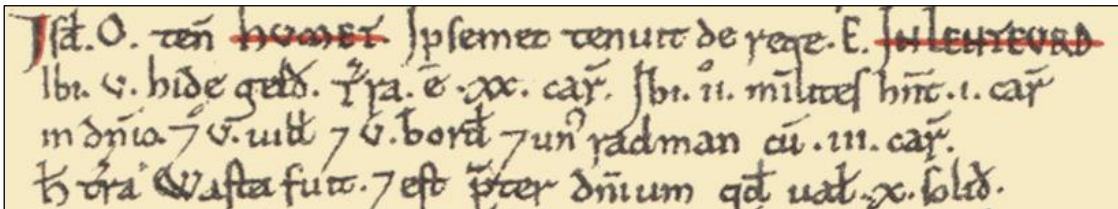 Isđ. O. teñ HUMET. Ipsemet tenuit de rege. E. IN LENTEURD
Ibi. v. hide gelđ. T̃ra. ē. xx. car̃. Ibi. ii. milites hñt. i. car̃
in dñio. ⁊ v. uilł ⁊ v. borđ ⁊ un radman cū. iii. car̃.
ħ tr̃a Wasta fuit. ⁊ est p̃ter dñium qđ uał. x. soliđ.